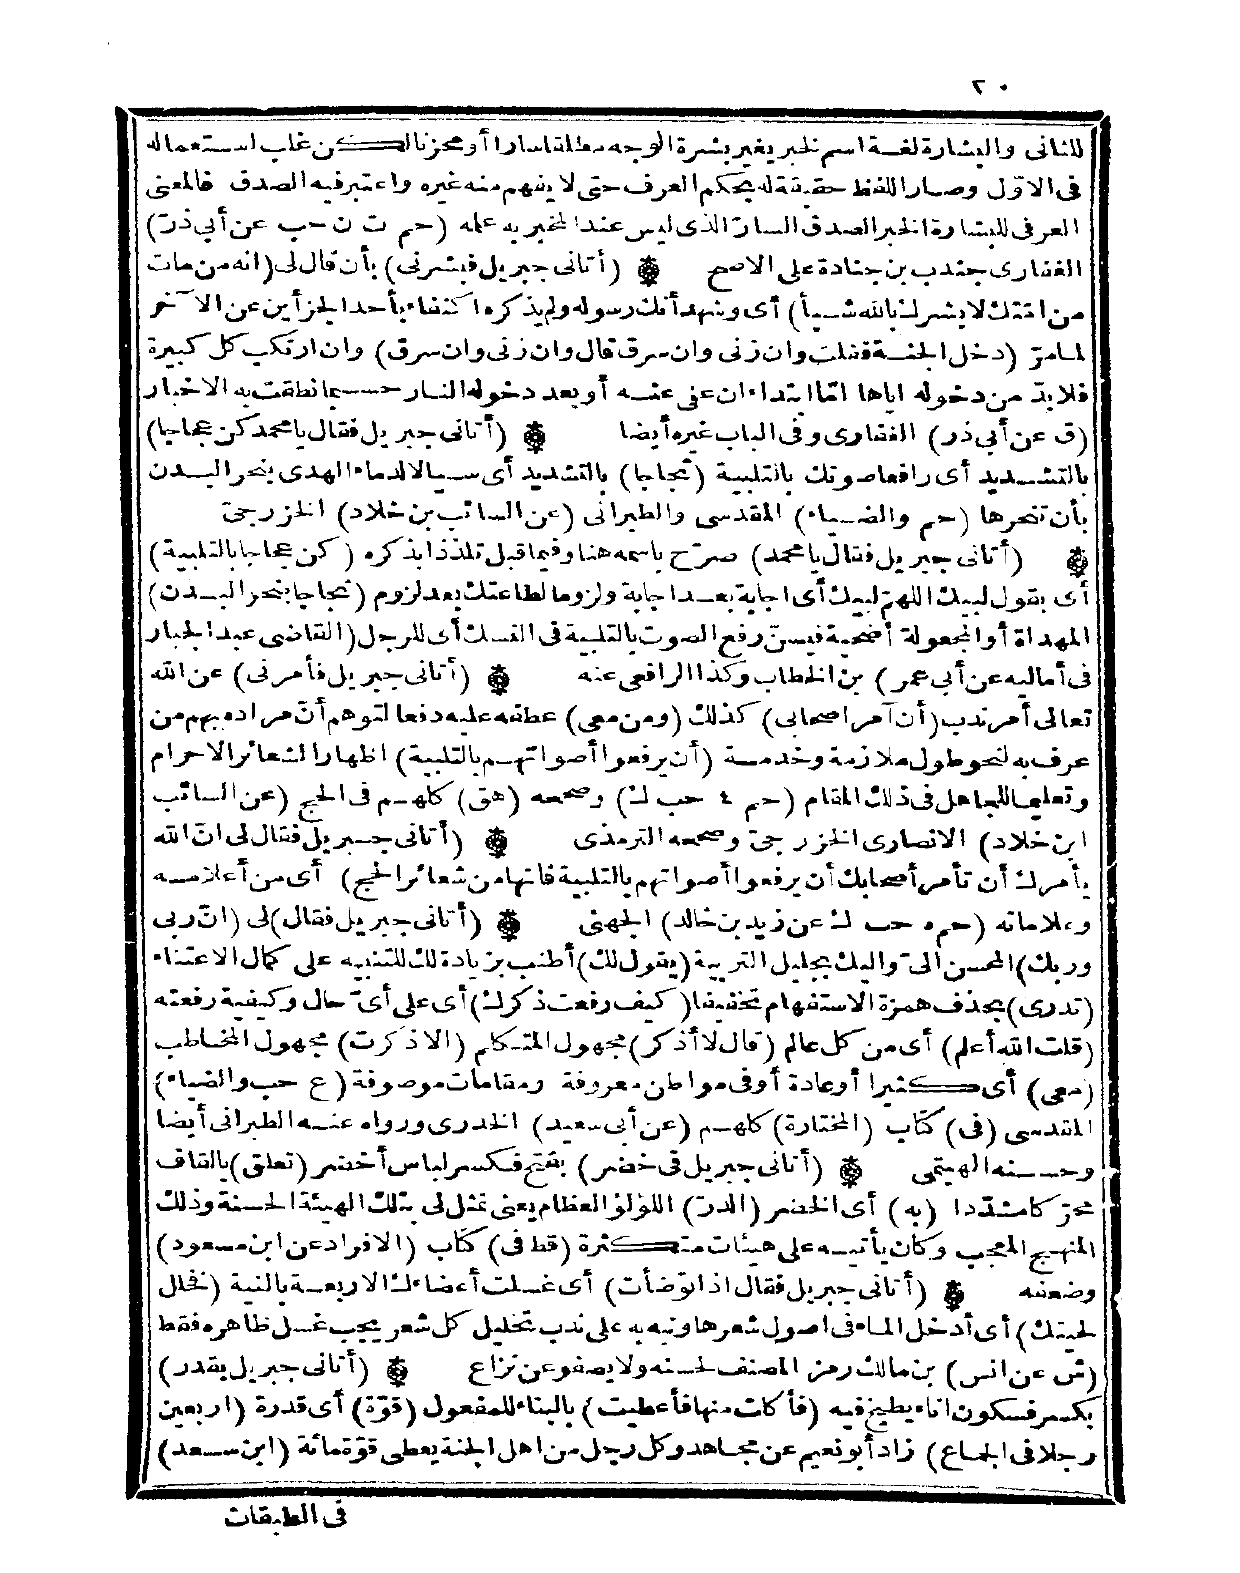 ٢٠
للثانى والبشارة لغة اسم لخبر يغير بشرة الوجه مطلقا سارا أو محزنا لكن غلب استعماله
فى الاوّل وصار اللفظ حقيقة له بحكم العرف حتى لا يفهم منه غيره واعتبر فيه الصدق فالمعنى
العرفى للبشارة الخبر الصدق السارّ الذى ليس عند المخبر به علمه (حم ت ن حب عن أبى ذرّ)
الغفارى جندب بن جنادة على الاصح ۞ (أتانى جبريل فبشرنى) بأن قال لى (انه من مات
من امّتك لا يشرك بالله شيأ) أى وشهد أنك رسوله ولم يذكره اكتفاء بأحد الجزأين عن الآخر
لمامرّ (دخل الجنة فقلت وان زنى وان سرق قال وان زنى وان سرق) وان ارتكب كل كبيرة
فلابدّ من دخوله اياها امّا ابتداء ان عفى عنه أو بعد دخوله النار حسبما نطقت به الاخبار
(ق عن أبى ذر) الغفارى وفى الباب غيره أيضا ۞ (أتانى جبريل فقال يا محمد كن عجاجا)
بالتشديد أى رافعا صوتك بالتلبية (ثجاجا) بالتشديد أى سيالا لدماء الهدى بنحر البدن
بأن تنحرها (حم والضياء) المقدسى والطبرانى (عن السائب بن خلاد) الخزرجىّ
۞ (أتانى جبريل فقال يا محمد) صرّح باسمه هنا وفيما قبل تلذذا بذكره (كن عجاجا بالتلبية)
أى بقول لبيك اللهمّ لبيك أى اجابة بعد اجابة ولزوما لطاعتك بعد لزوم (ثجاجا بنحر البدن)
المهداة أو المجعولة أضحية فيسنّ رفع الصوت بالتلبية فى النسك أى للرجل (القاضى عبد الجبار
فى أماليه عن أبى عمر) بن الخطاب وكذا الرافعى عنه ۞ (أتانى جبريل فأمرنى) عن الله
تعالى أمر ندب (أن آمر اصحابى) كذلك (ومن معى) عطفه عليه دفعا لتوهم أنّ مراده بهم من
عرف به لنحو طول ملازمة وخدمة (أن يرفعوا أصواتهم بالتلبية) اظهارا لشعائر الاحرام
وتعليما للجاهل فى ذلك المقام (حم ٤ حب ك) وصححه (هق) كلهم فى الحج (عن السائب
ابن خلاد) الانصارى الخزرجىّ وصححه الترمذى ۞ (أتانى جبريل فقال لى انّ الله
يأمرك أن تأمر أصحابك أن يرفعوا أصواتهم بالتلبية فانها من شعائر الحج) أى من أعلامه
وعلاماته (حم ه حب ك عن زيد بن خالد) الجهنى ۞ (أتانى جبريل فقال) لى (انّ ربى
وربك) المحسن الىّ واليك بجليل التربية (يقول لك) أطنب بزيادة لك للتنبيه على كمال الاعتناء
(تدرى) بحذف همزة الاستفهام تخفيفا (كيف رفعت ذكرك) أى على أىّ حال وكيفية رفعته
(قلت الله أعلم) أى من كل عالم (قال لا أذكر) مجهول المتكلم (الا ذكرت) مجهول المخاطب
(معى) أى كثيرا أو عادة أو فى مواطن معروفة ومقامات موصوفة (ع حب والضياء)
المقدسى (فى) كتاب (المختارة) كلهم (عن أبى سعيد) الخدرى ورواه عنه الطبرانى أيضا
وحسنه الهيتمى ۞ (أتانى جبريل فى خضر) بفتح فكسر لباس أخضر (تعلق) بالقاف
محرّكا مشدّدا (به) أى الخضر (الدرّ) اللؤلؤ العظام يعنى تمثل لى بتلك الهيئة الحسنة وذلك
المنهج المعجب وكان يأتيه على هيئات متكثرة (قط فى) كتاب (الافراد عن ابن مسعود)
وضعفه ۞ (أتانى جبريل فقال اذا توضأت) أى غسلت أعضاءك الاربعة بالنية (فخلل
لحيتك) أى أدخل الماء فى اصول شعرها ونبه به على ندب تخليل كل شعر يجب غسل ظاهره فقط
(ش عن انس) بن مالك رمز المصنف لحسنه ولا يصفو عن نزاع ۞ (أتانى جبريل بقدر)
بكسر فسكون اناء يطبخ فيه (فأكلت منها فأعطيت) بالبناء للمفعول (قوّة) أى قدرة (اربعين
رجلا فى الجماع) زاد أبو نعيم عن مجاهد وكل رجل من اهل الجنة يعطى قوّة مائة (ابن سعد)
فى الطبقات